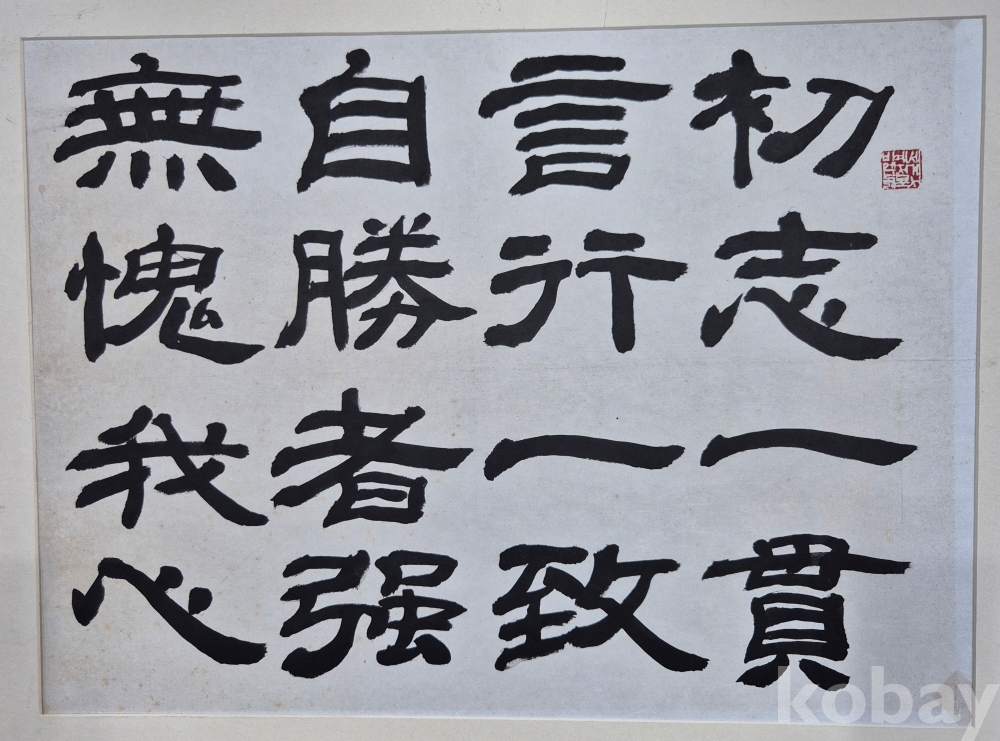 初志一貫
言行一致
自勝者强
無愧我心
kobay